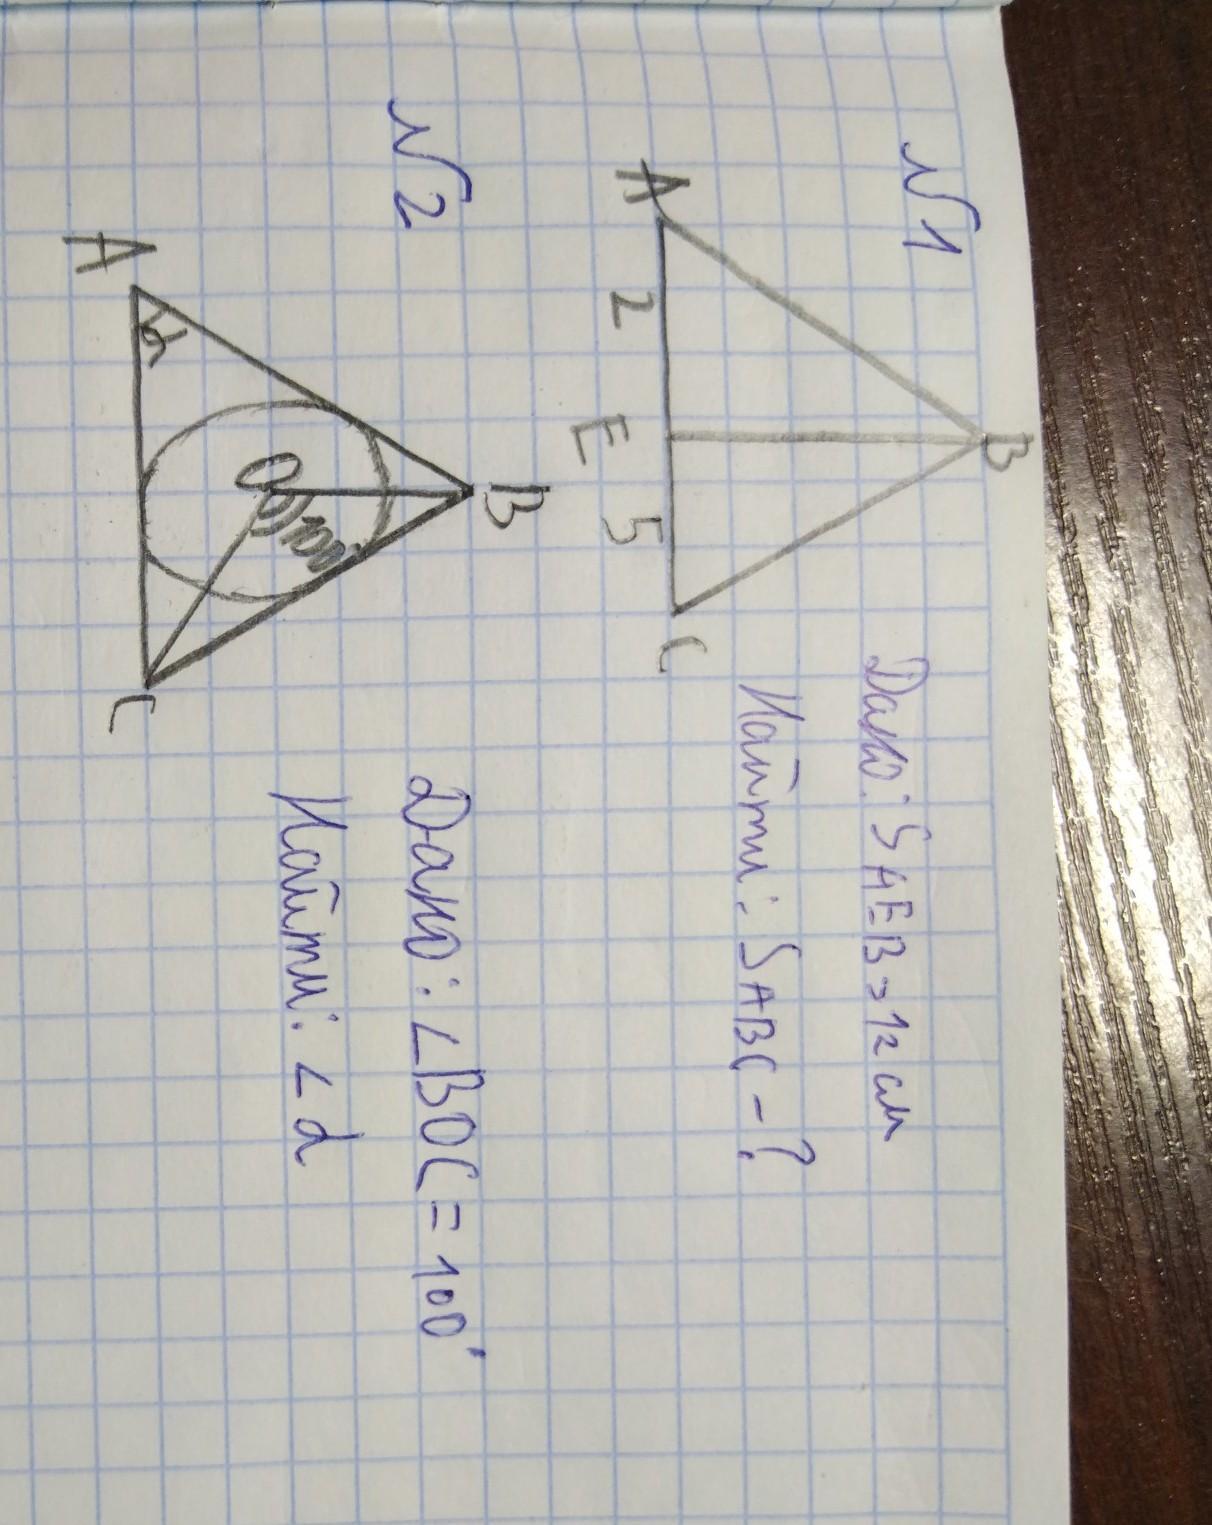 №1
B
A 2 E 5 C
Дано: SAEB = 12 см
Найти: SABC - ?
№2
B
O 100
A α C
Дано: ∠BOC = 100°
Найти: ∠α